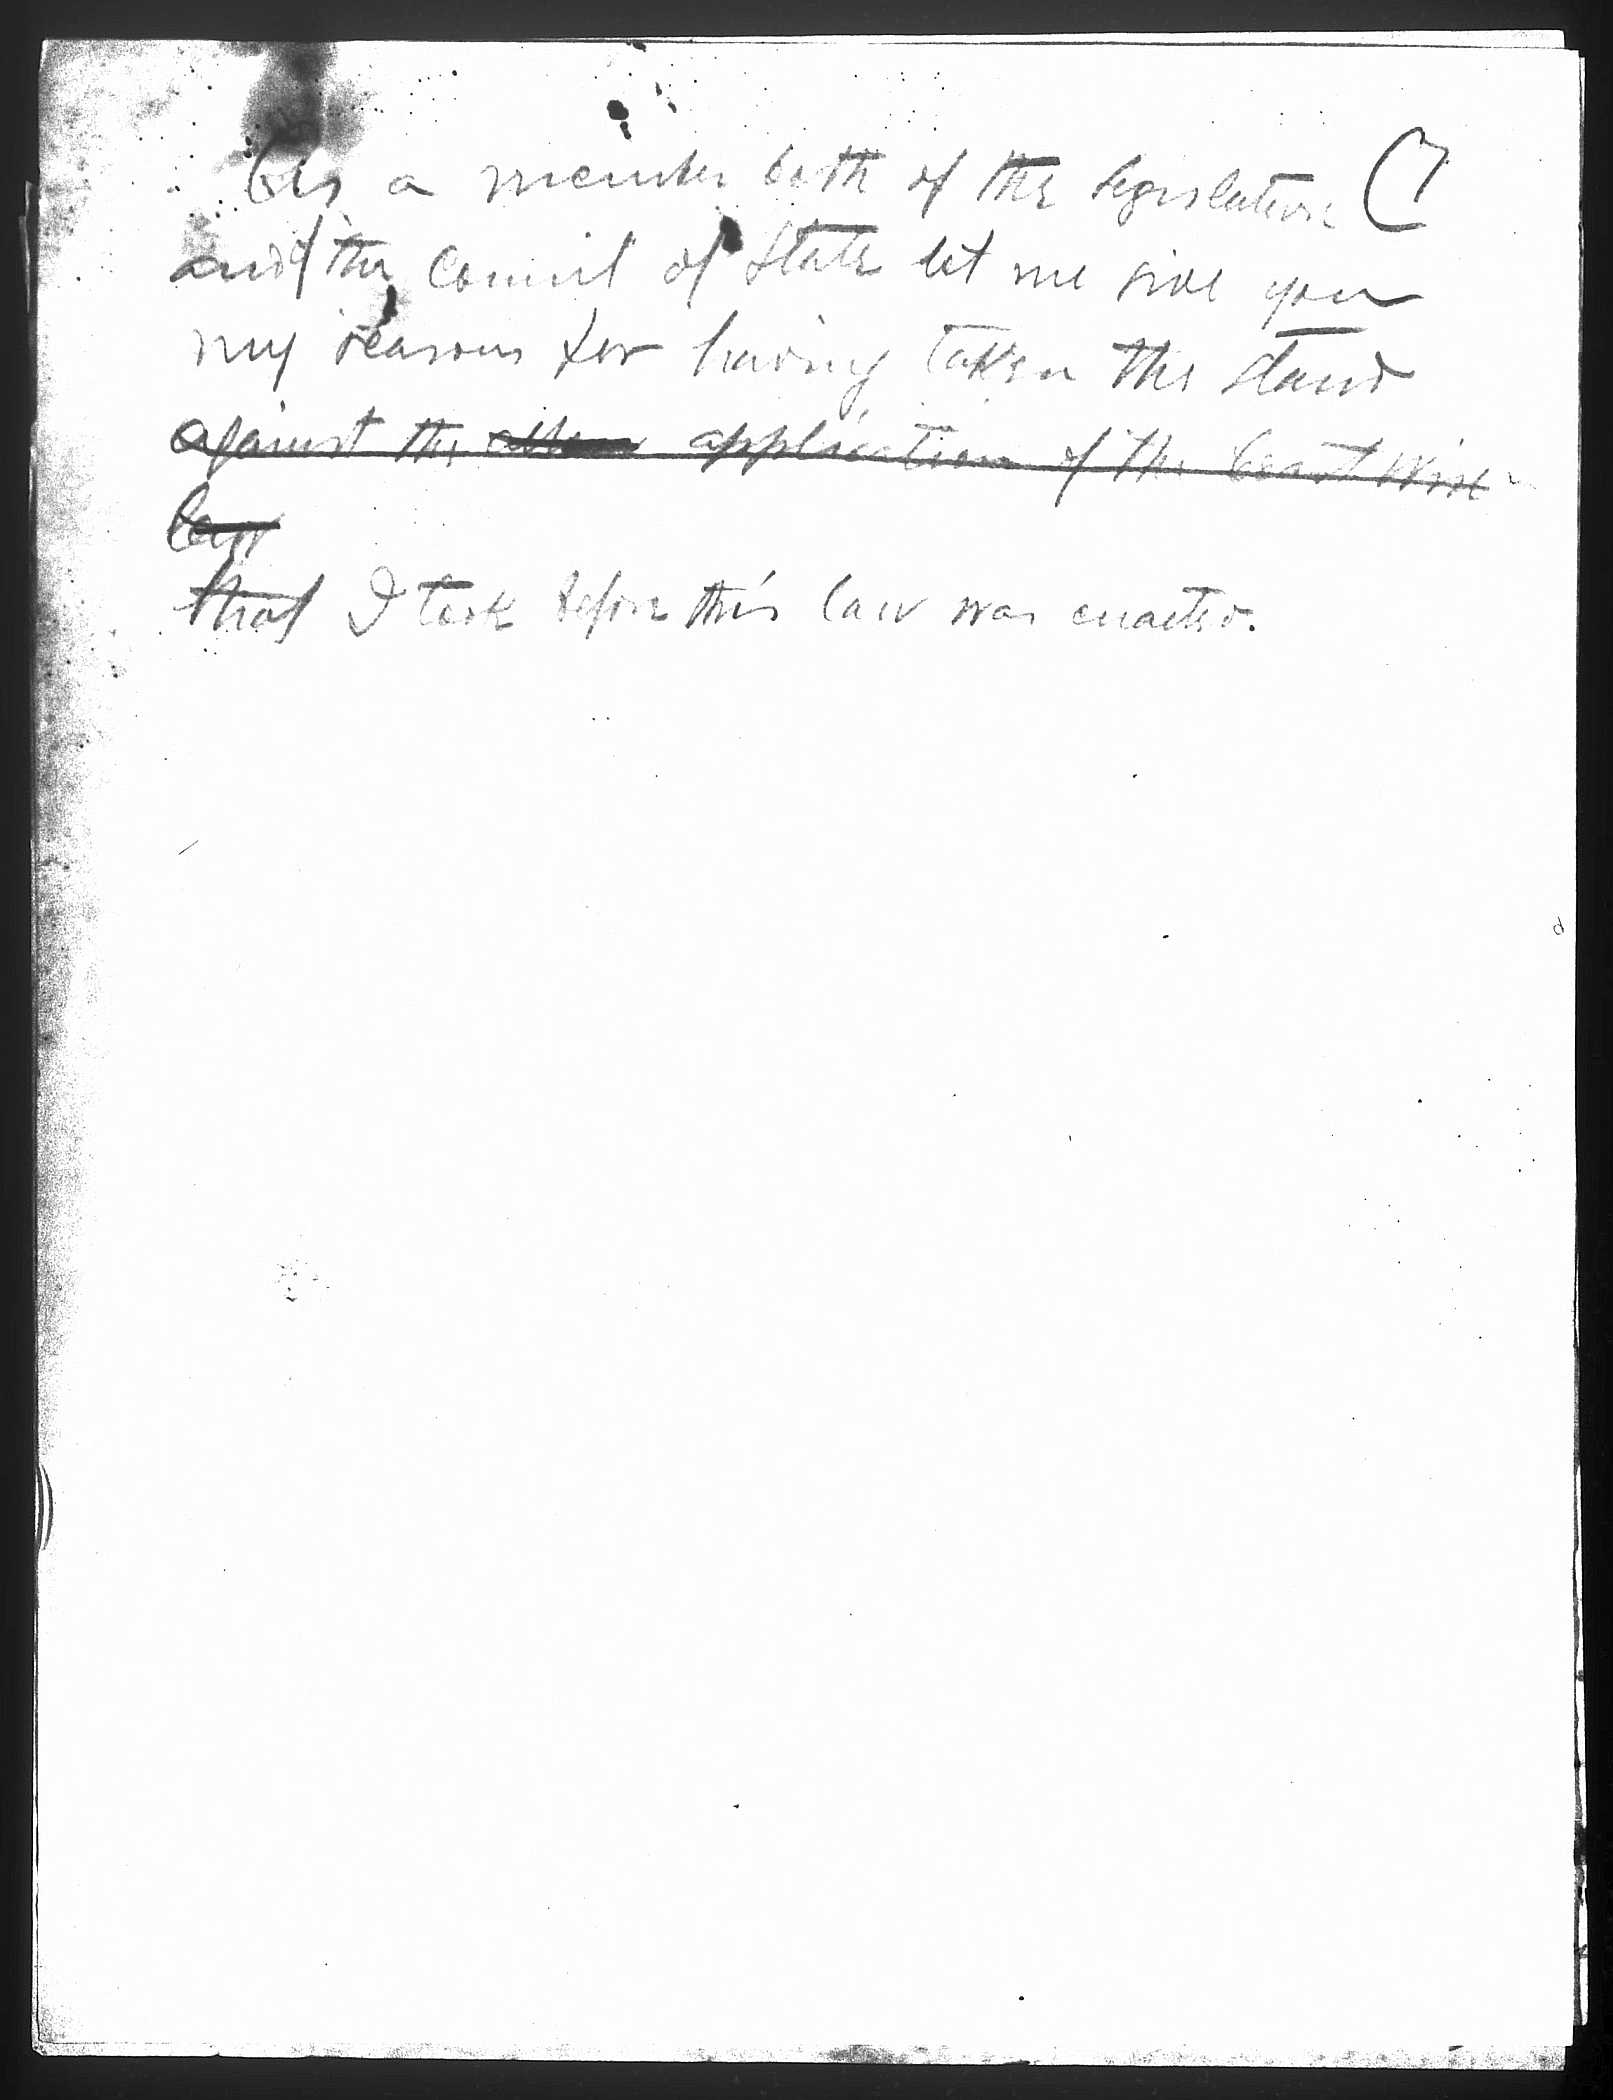 As a member both of the legislature (7
and of the Council of State let me give you
my reasons for having taken the stand
against the application of the coastwise
law
that I took before this law was enacted.